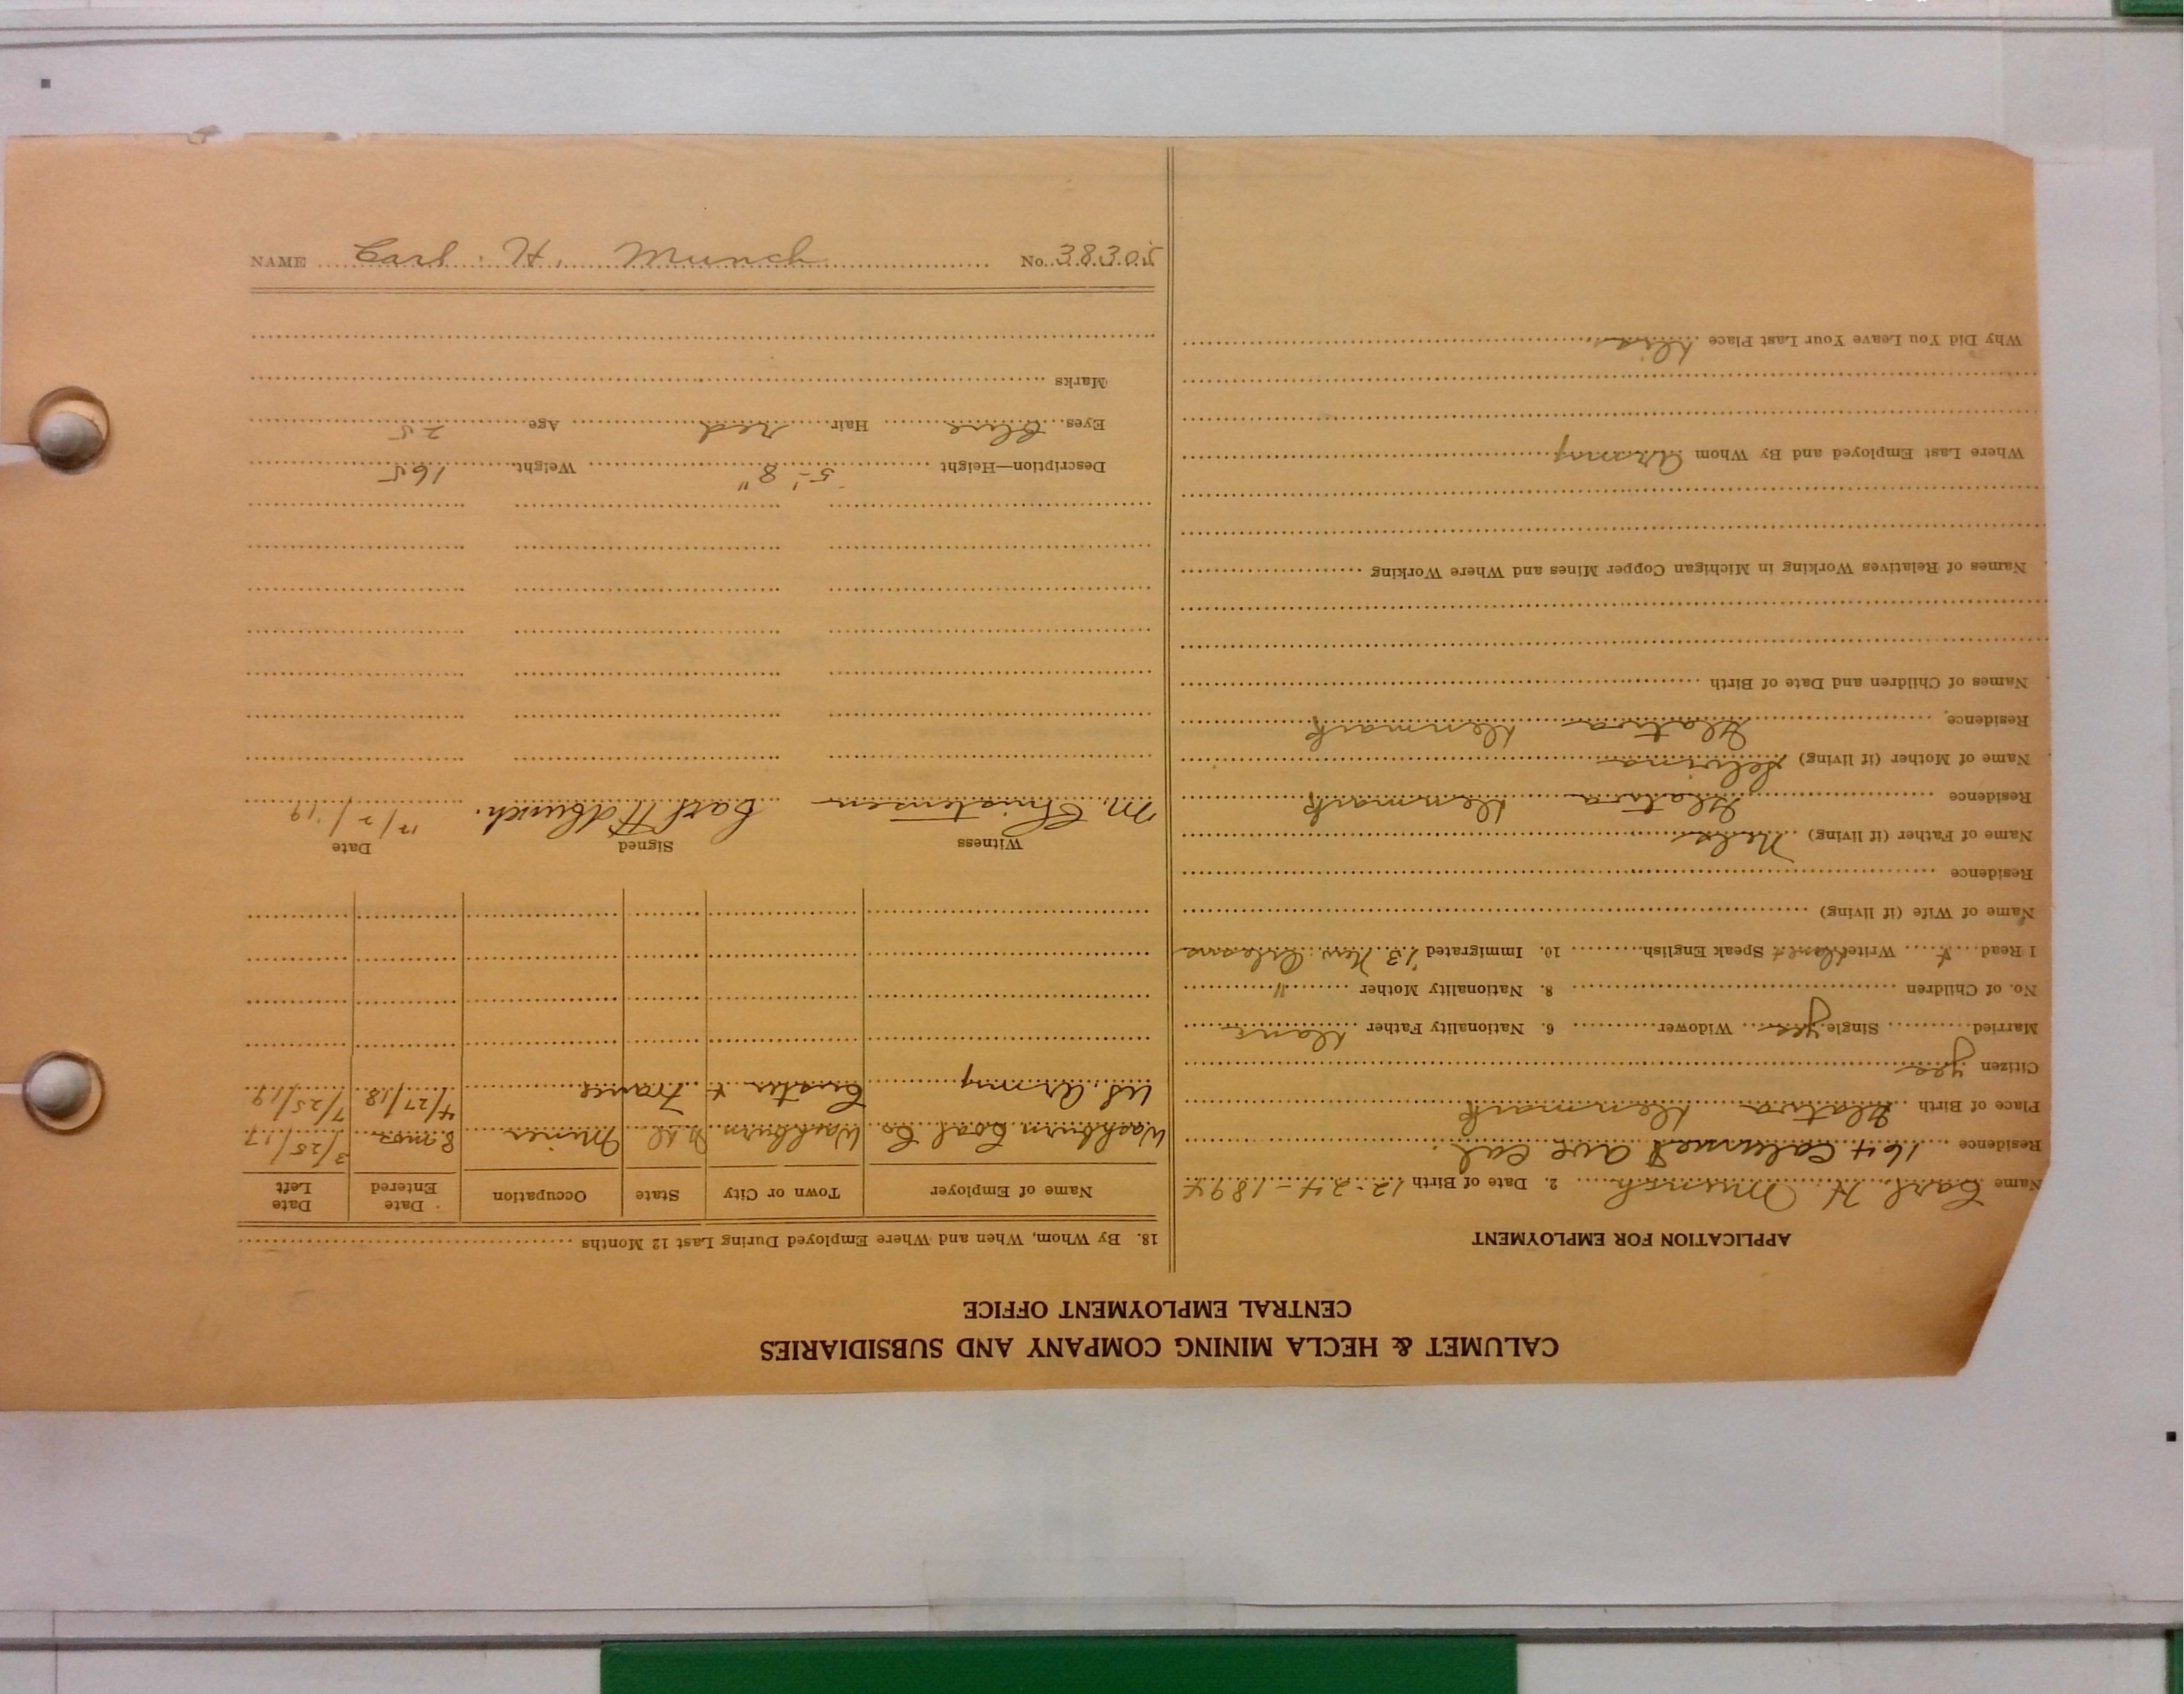 CALUMET & HECLA MINING COMPANY AND SUBSIDIARIES
CENTRAL EMPLOYMENT OFFICE
APPLICATION FOR EMPLOYMENT
Name Carl H Munch 2. Date of Birth 12-24-1894
Residence 164 Calumet Ave Cal.
Place of Birth Denmark
Citizen yes
Married Single yes Widower 6. Nationality Father Dane
No. of Children 8. Nationality Mother "
I Read Write Speak English 10. Immigrated '13 New Orleans
Name of Wife (if living)
Residence
Name of Father (if living) Nels
Residence Denmark
Name of Mother (if living)
Residence Denmark
Names of Children and Date of Birth
Names of Relatives Working in Michigan Copper Mines and Where Working
Where Last Employed and By Whom Army
Why Did You Leave Your Last Place Dis
18. By Whom, When and Where Employed During Last 12 Months
Name of Employer Town or City State Occupation Date Entered Date Left
Washburn Coal Co Washburn N.D. Miner 8 mos 3/25/17
US Army Custer & France 4/27/18 7/25/19
Witness Signed Date
M. Christensen Carl H Munch. 12/2/19
Description—Height 5'-8" Weight 165
Eyes Blue Hair red Age 25
Marks
NAME Carl H. Munch No. 38305